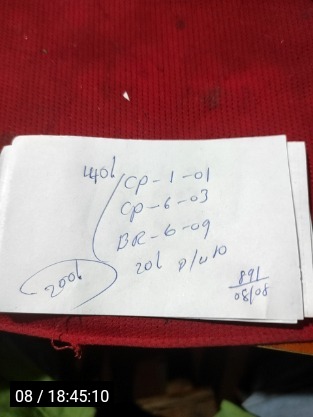 440l
CP-1-01
CP-6-03
BR-6-09
20l
200l
891
08/08
08 / 18:45:10